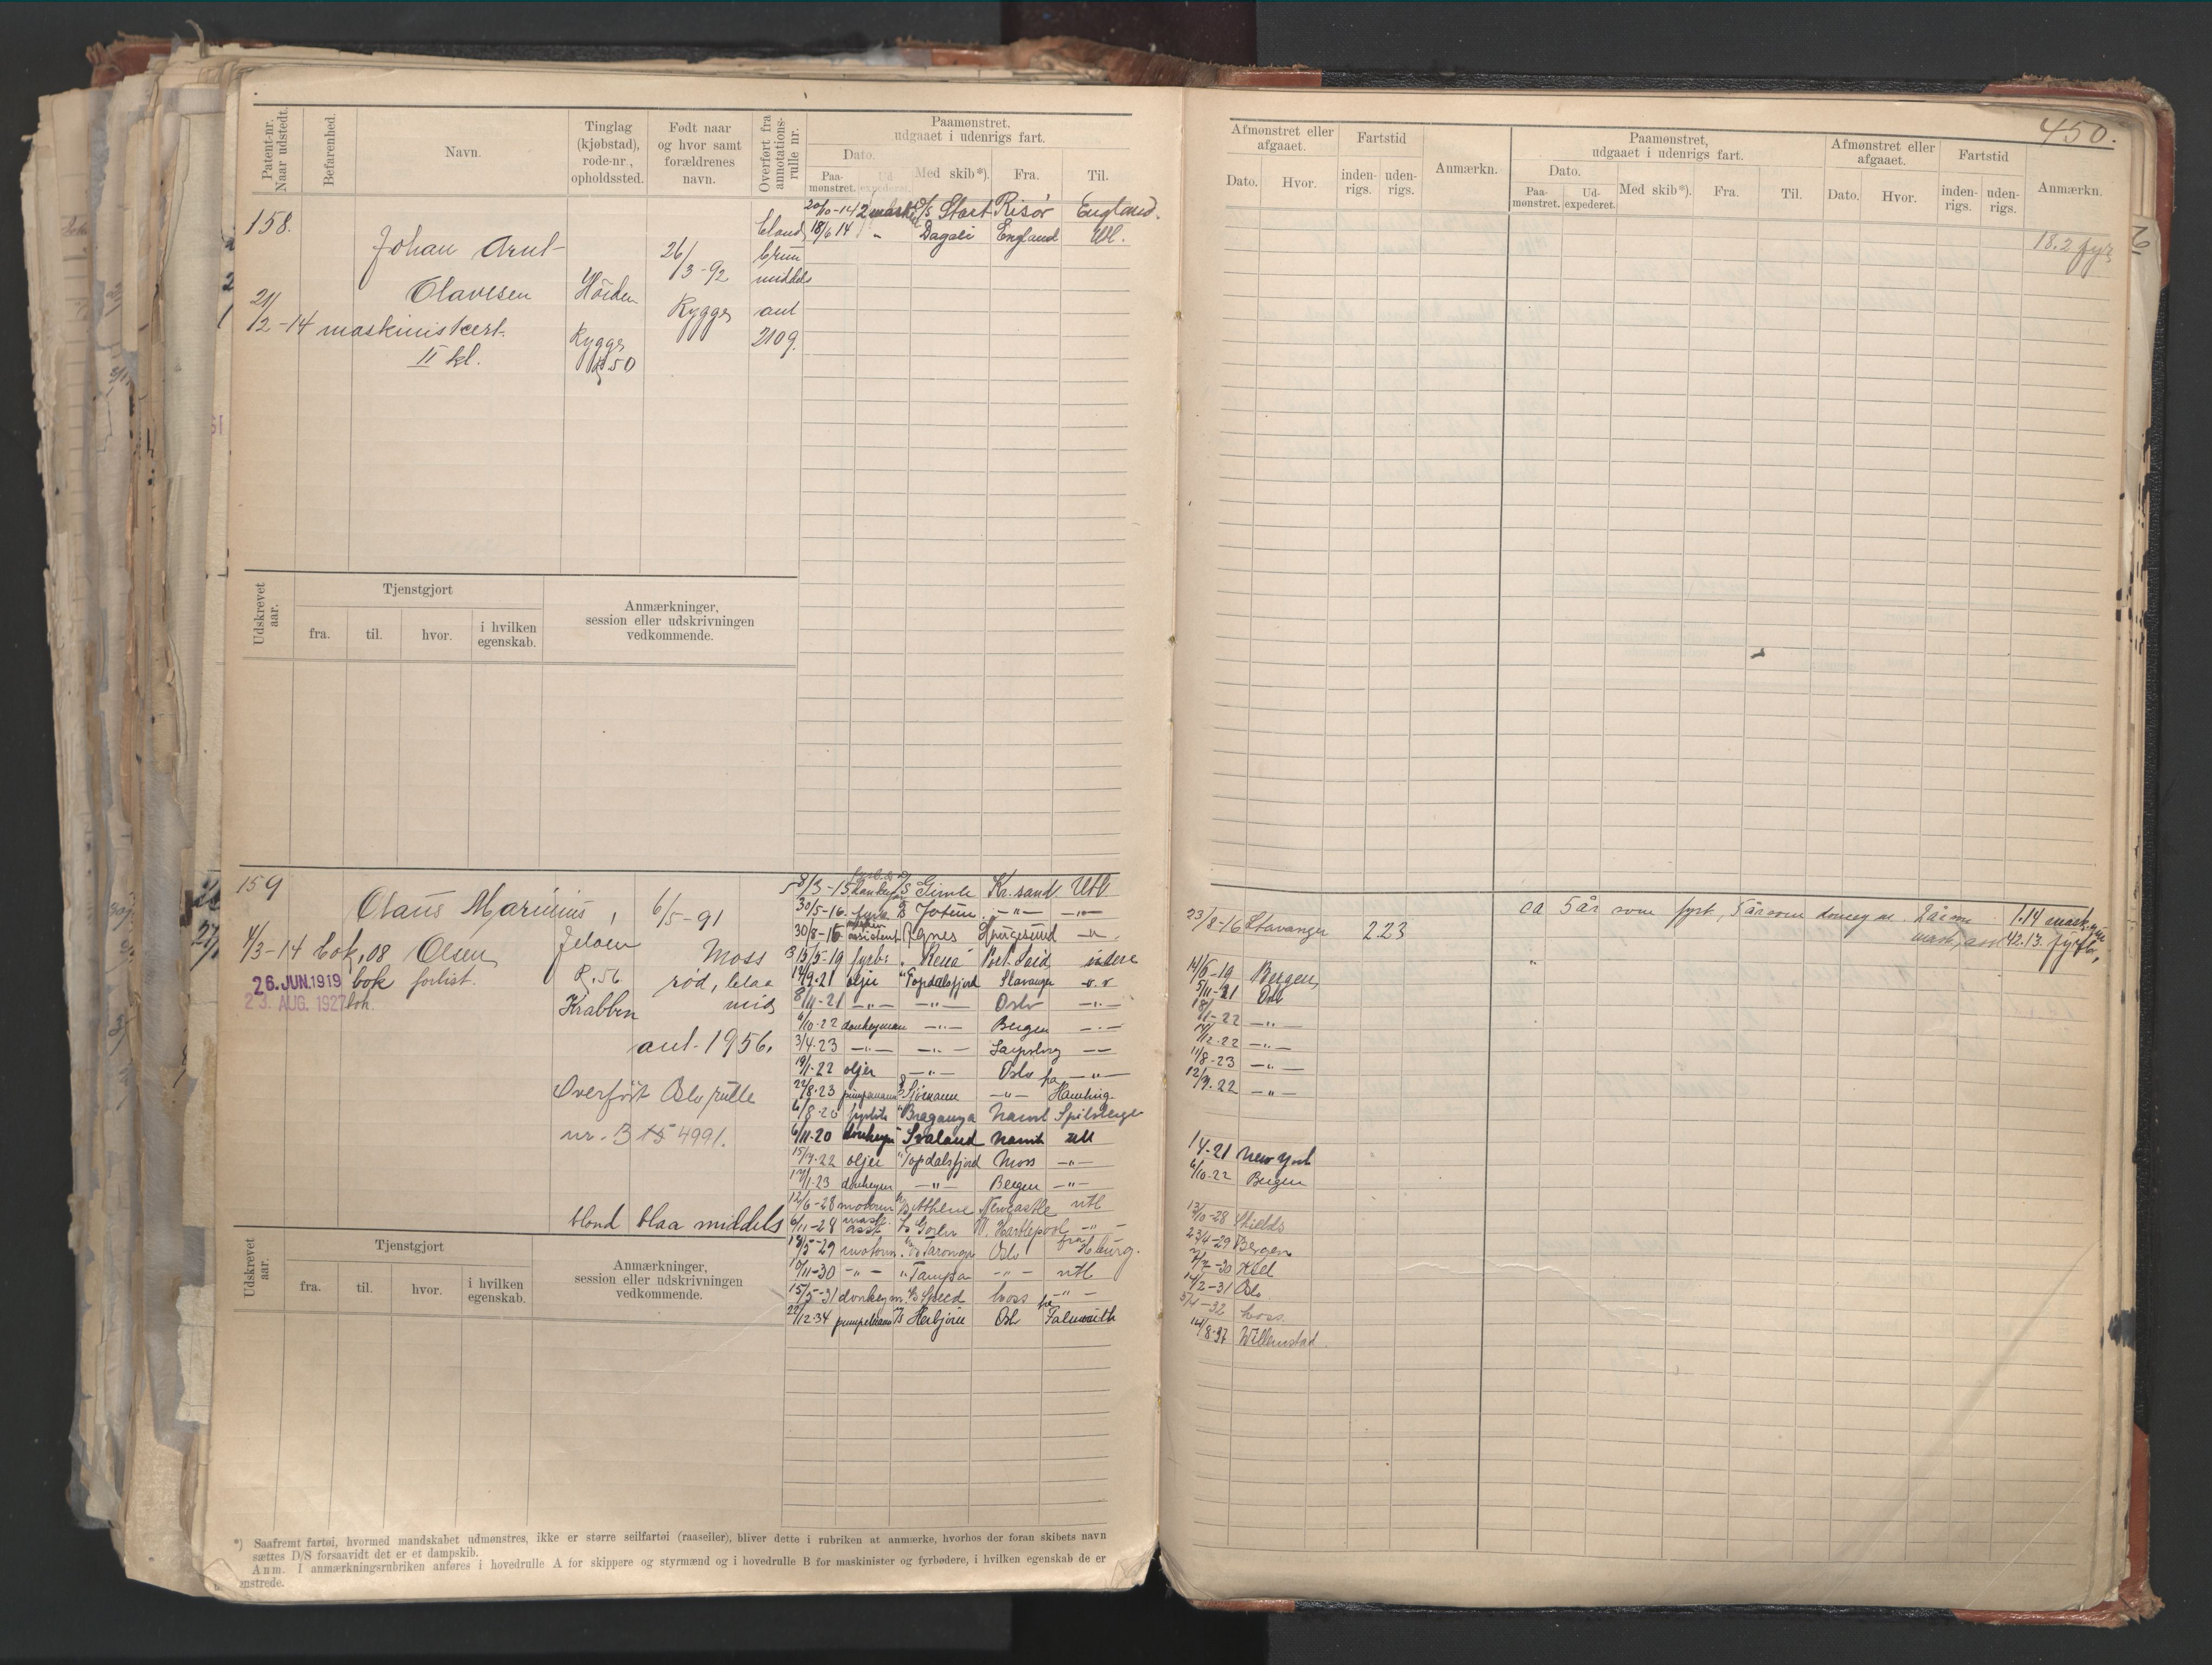 450.
Patent-nr.
Naar udstedt.
Befarenhed.
Navn.
Tinglag
(kjøbstad),
rode-nr.,
opholdssted.
Født naar
og hvor samt
forældrenes
navn.
Overført fra
annotations-
rulle nr.
Paamønstret,
udgaaet i udenrigs fart.
Dato.
Paa-
mønstret.
Ud
expederet.
Med skib*).
Fra.
Til.
158.
Johan Arnt
Olavesen
21/2-14 maskinistcert.
II kl.
Höiden
Rygge
R 50
26/3-92
Rygge
blond
brun
middels
ant
2109.
20/10-14 2 mask. D/S Start Risør England.
18/6 14 " Dagali England Utl.
Udskrevet
aar.
Tjenstgjort
fra.
til.
hvor.
i hvilken
egenskab.
Anmærkninger,
session eller udskrivningen
vedkommende.
159
Olaus Marinius,
Olsen
4/3-14 bok, 08
26. JUN. 1919 bok forlist.
23. AUG. 1927 bok
Jeløen
R. 56
Krabben
6/5-91
Moss
rød, blaa
mid
ant-1956.
Overført Oslo rulle
nr. B 15 4991.
blond blaa middels
8/3-15 donkey D/S Gimle Kr.sand Utl
30/5-16. fyrb Jotun -"- -"-
30/8-16 assistent Agnes Haugesund -"-
13/5-19 fyrb: Rena Port Said indere
12/9-21 oljer " Topdalsfjord Stavanger
8/11-21 -"- -"- Oslo -"-
6/10-22 donkeyman -"- Bergen -"-
3/4-23 -"- -"- Sarpsborg -"-
19/1-22 oljer -"- Oslo -"-
22/8-23 pumpemann Sjømann -"- fra Hamburg.
6/8-20 fyrbøte " Braganza Narvik Spitsbergen
6/11-20 donkeym " Svaland Narvik Utl
15/7-22 oljer " Topdalsfjord Moss -"-
17/1-23 donkeym -"- Bergen -"-
12/6-28 motorm Betthene Newcastle utl
6/11-28 mask. asst W. Hartlepool -"-
18/5-29 motorm. Taronga Oslo fra Hburg.
11-30 -"- " Tampa -"- utl
15/5-31 donkeym. Speed Moss -"-
22/12-34 pumpemann Herbjørn Oslo fra Falmouth
Udskrevet
aar.
Tjenstgjort
fra.
til.
hvor.
i hvilken
egenskab.
Anmærkninger,
session eller udskrivningen
vedkommende.
*) Saafremt fartøi, hvormed mandskabet udmønstres, ikke er større seilfartøi (raaseiler), bliver dette i rubriken at anmærke, hvorhos der foran skibets navn
sættes D/S forsaavidt det er et dampskib.
Anm. I anmærkningsrubriken anføres i hovedrulle A for skippere og styrmænd og i hovedrulle B for maskinister og fyrbødere, i hvilken egenskab de er
enstrede.
Afmønstret eller
afgaaet.
Dato.
Hvor.
Fartstid
inden-
rigs.
uden-
rigs.
Anmærkn.
Paamønstret,
udgaaet i udenrigs fart.
Dato.
Paa-
mønstret.
Ud-
expederet.
Med skib*).
Fra.
Til.
Afmønstret eller
afgaaet.
Dato.
Hvor.
Fartstid
inden-
rigs.
uden-
rigs.
Anmærkn.
18.2 fyr
23/8-16 Stavanger 2.23
ca 5 år som fyrb., 5 år som donkeym. 2 år som
mask, ass
1.14 mask
42.13. fyrb.
14/6-19 Bergen
5/11-21 Oslo
18/1-22 -"-
14/12-22 -"-
11/8-23 -"-
12/7.22 -"-
1 4-21 New York
6/10-22 Bergen
13/10-28 Shields
23/4-29 Bergen
-30 Kiel
14/2-31 Oslo
5/4-32 Moss
14/8-37 Willemstad.